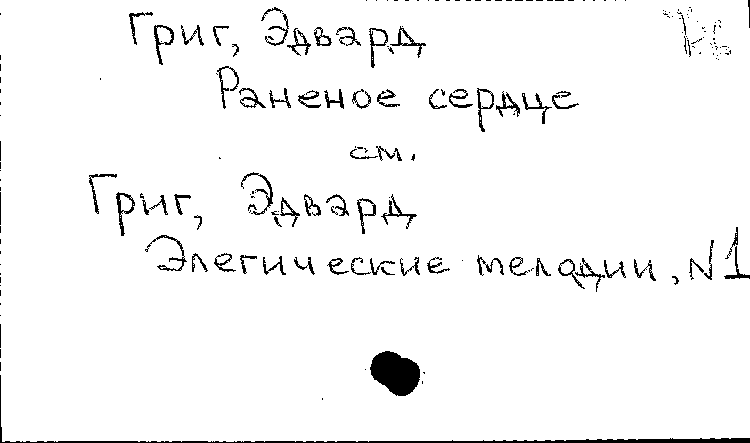 Григ, Эдвард
Раненое сердце
см.
Григ, Эдвард
Элегические мелодии, N1